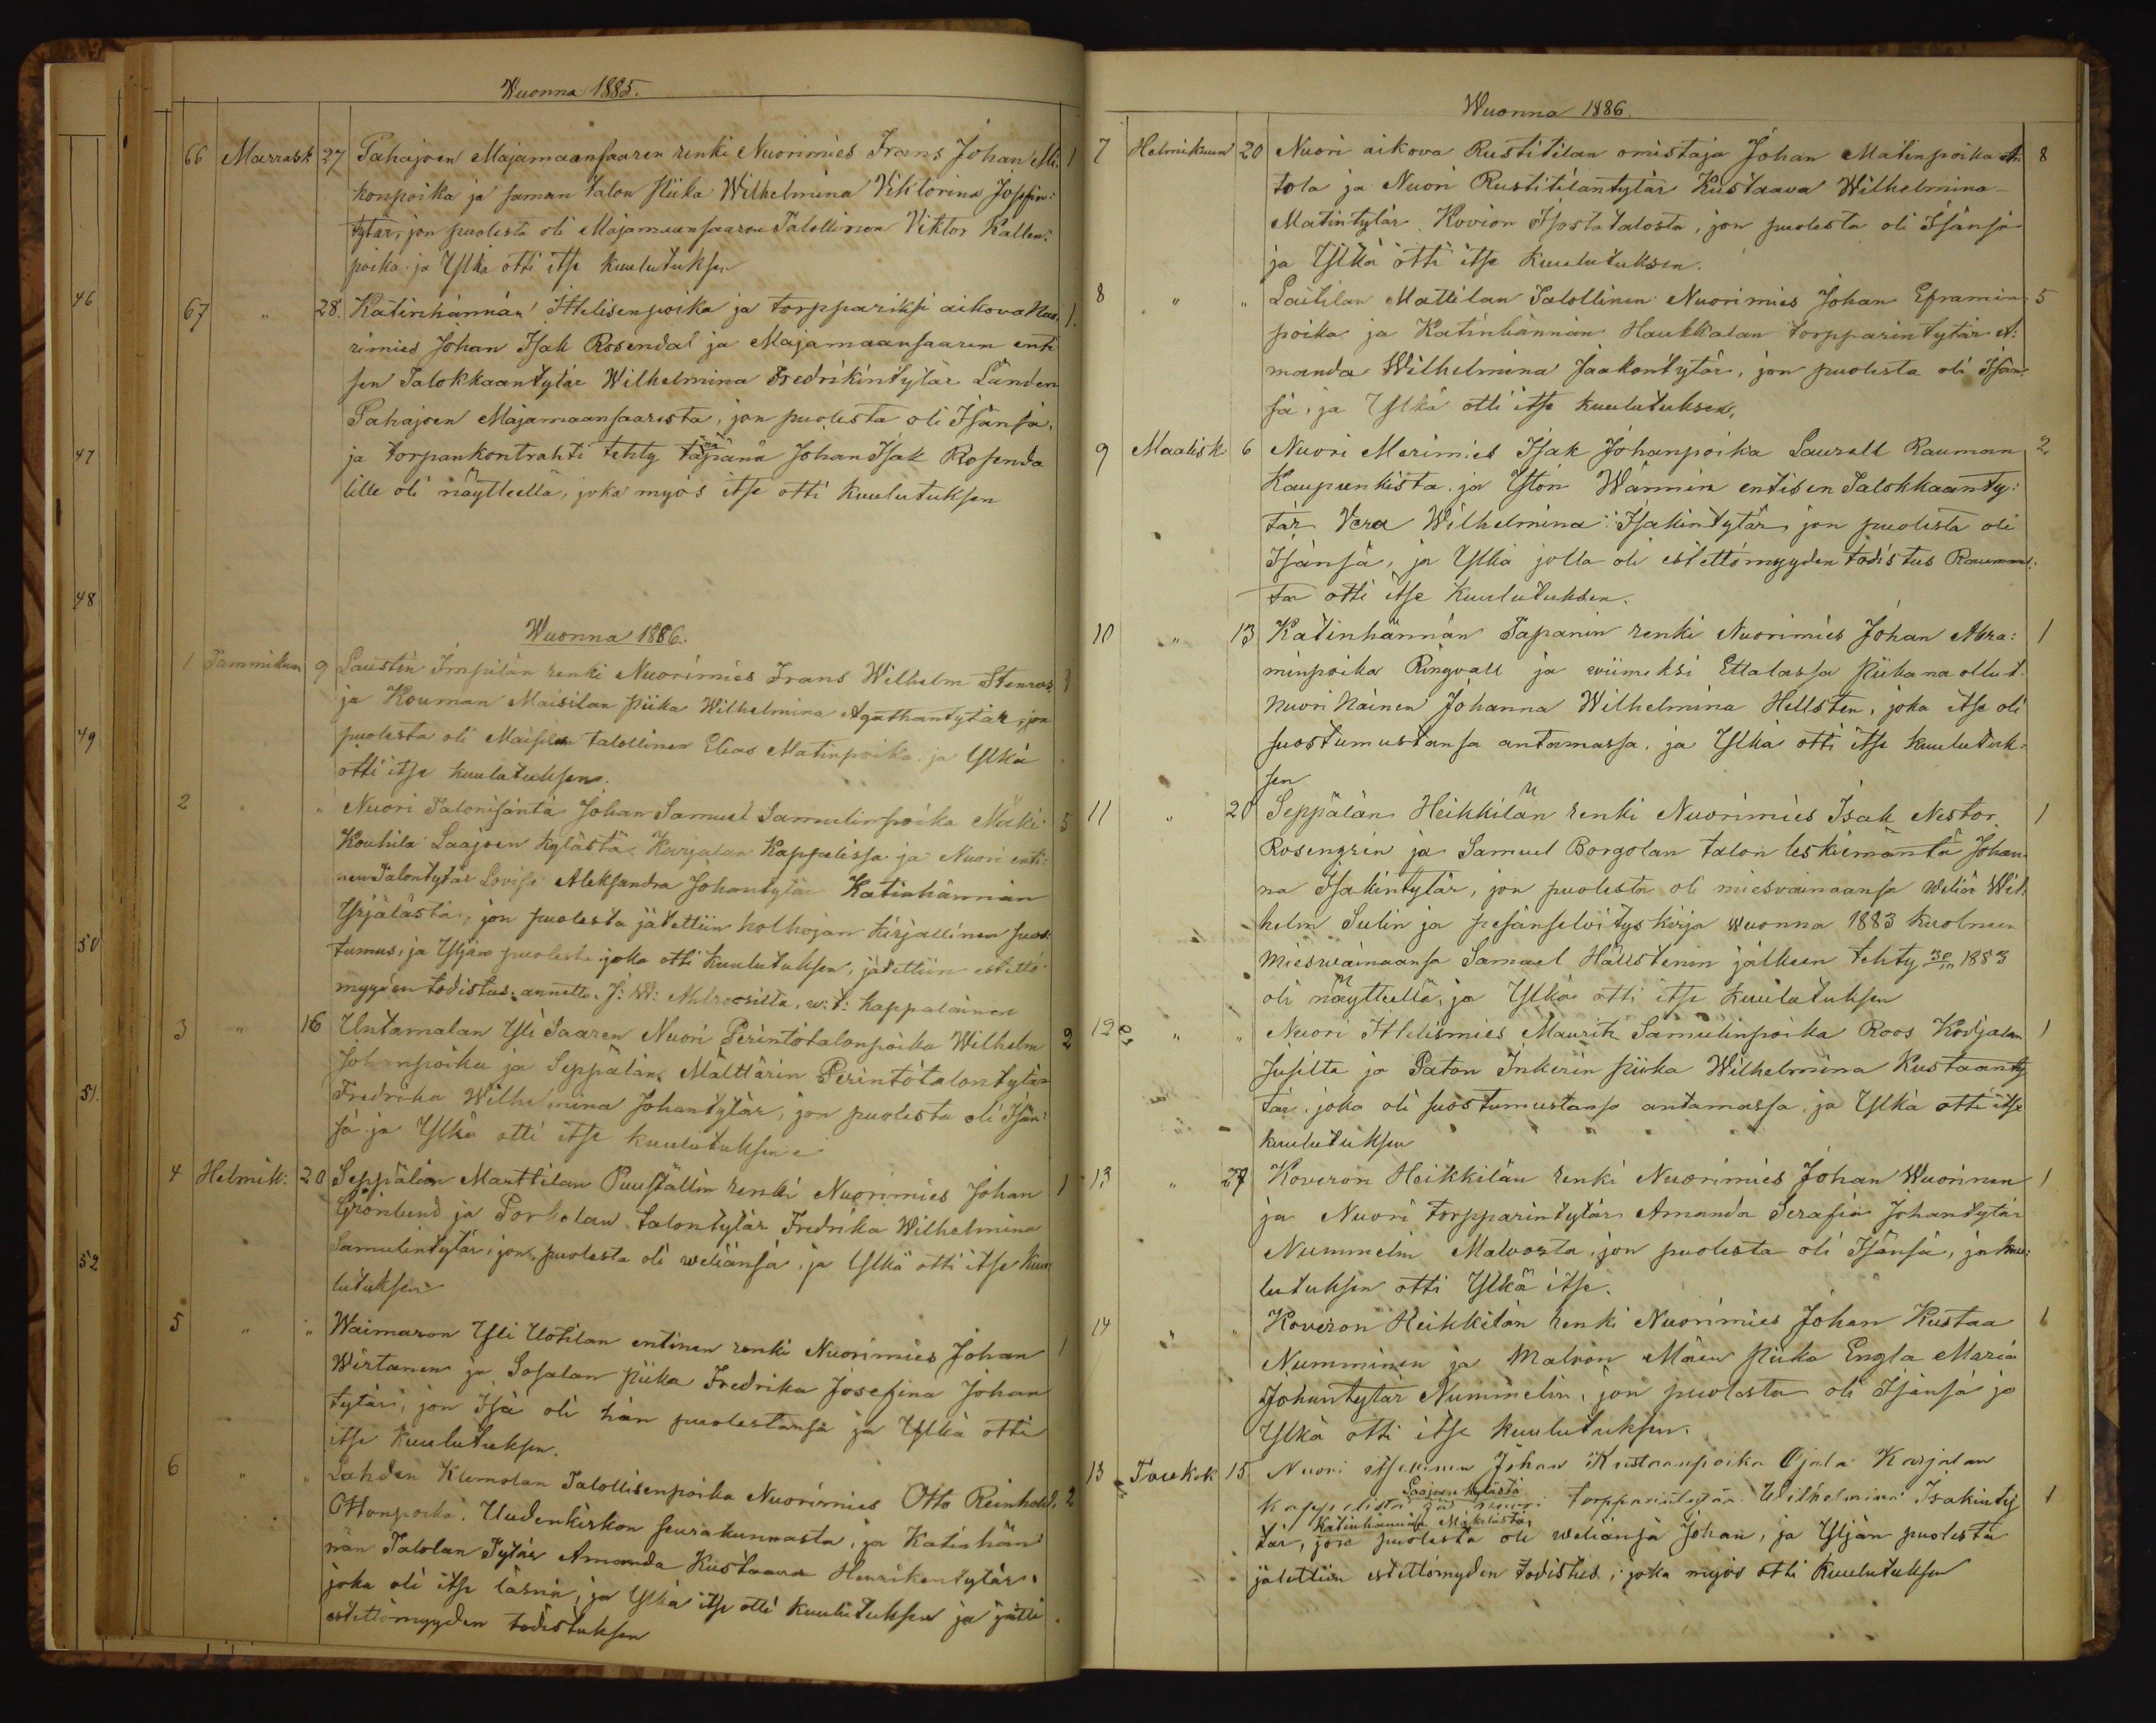 Wuonna 1885.
66 Marrask 27 Pahajoen Majamaansaaren renki Nuorimies Frans Johan Mi: 1
konpoika ja saman talon Piika Wilhelmina Viktorina Josefin:
tytär, jon puolesta oli Majamaansaaren Talollinen Viktor Kallen:
poika ja Ylkä otti itse kuulutuksen
67 " 28. Katinhännän Ittelisenpoika ja torppariksi aikova Nuo: 1.
rimies Johan Isak Rosendal ja Majamaansaaren enti
sen Talokkaantytär Wilhelmina Fredrikintytär Landen
Pahajoen Majamaansaaresta, jon puolesta oli Isänsä,
ja torpankontrahti tehty tänäpänä Johan Isak Rosenda
lille oli näytteellä, joka myös itse otti kuulutuksen
46
47
48
49
50
51.
52
Wuonna 1886.
1 Tammikuun 9 Laustin Impilän renki Nuorimies Frans Wilhelm Stenroos 1
ja Kouman Maisilan Piika Wilhelmina Agathantytär, jon
puolesta oli Maisilan talollinen Elias Matinpoika ja Ylkä
otti itse kuulutuksen.
2 " " Nuori Talonisäntä Johan Samuel Samulinpoika Mäki 5
Kouhila Laajoen kylästä Karjalan Kappelissa ja Nuori enti:
nen Talontytär Lovisa Aleksandra Johantytär Katinhännän
Yrjälästä, jon puolesta jätettiin holhojan kirjallinen suos:
tumus, ja Yljän puolesta joka otti kuulutuksen, jätettiin estettö
myyden todistus annettu J: W: Ahlroosilta, w: t: kappalainen
3 " 16 Untamalan Yli Saaren Nuori Perintötalonpoika Wilhelm 2
Johanpoika ja Seppälän Mälttärin Perintötalontytär
Fredrika Wilhelmina Johantytär, jon puolesta oli Isän:
sä ja Ylkä otti itse kuulutuksen
4 Helmik: 20 Seppälän Marttilan Puuställin renki Nuorimies Johan 1
Grönlund ja Porkolan talontytär Fredrika Wilhelmina
Samulintytär, jon puolesta oli weliänsä, ja Ylkä otti itse kuu
lutuksen
5 " " Waimaron Yli Uotilan entinen renki Nuorimies Johan 1
Wirtanen ja Sosalan Piika Fredrika Josefina Johan
tytär, jon Isä oli hän puolestansa ja Ylkä otti
itse kuulutuksen.
6 " " Lahden Klemolan Talollisenpoika Nuorimies Otto Reinhold 2
Ottonpoika, Uudenkirkon seurakunnasta, ja Katinhän
nän Talolan Tytär Amanda Kustaava Henrikintytär,
joka oli itse läsnä, ja Ylkä itse otti kuulutuksen ja jätti
estettömyyden todistuksen
Wuonna 1886.
7 Helmikuun 20 Nuori aikova Rustitilan omistaja Johan Matinpoika At: 8
tola ja Nuori Rustitilantytär Kustaava Wilhelmina
Matintytär Kovion Isosta talosta, jon puolesta oli Isänsä
ja Ylkä otti itse kuulutuksen.
8 " " Laitilan Mattilan Talollinen Nuorimies Johan Eframin 5
poika ja Katinhännän Haukkalan torpparintytär A:
manda Wilhelmina Jaakontytär, jon puolesta oli Isän
sä, ja Ylkä otti itse kuulutuksen,
9 Maalisk 6 Nuori Merimies Isak Johanpoika Laurell Rauman 2
Kaupunkista ja Ytön Wärmin entisen Talokkaanty:
tär Vera Wilhelmina Isakintytär, jon puolesta oli
Isänsä, ja Ylkä jolla oli estettömyyden todistus Raumal:
ta otti itse kuulutuksen.
10 " 13 Katinhännän Tapanin renki Nuorimies Johan Abra: 1
minpoika Ringvall ja wiimeksi Ettalassa Piikana ollut
Nuori Nainen Johanna Wilhelmina Hellsten, joka itse oli
suostumustansa antamassa, ja Ylkä otti itse kuulutuk:
sen
11 " 20 Seppälän Heikkilän renki Nuorimies Isak Nestor 1
Rosengren ja Samuel Borgolan talon leskiemäntä Johan
na Isakintytär, jon puolesta oli miesvainaansa weliä Wil
helm Sulin ja pesänselvityskirja wuonna 1883 kuolleen
Mieswainaansa Samuel Hällstenin jälkeen tehty 30/10 1883
oli näytteellä, ja Ylkä otti itse kuulutuksen
12 " " Nuori Ittelismies Maurits Samulinpoika Roos Kodjalan 1
Jusilta ja Paton Inkerin Piika Wilhelmina Kustaanty
tär, joka oli suostumustansa antamassa, ja Ylkä otti itse
kuulutuksen
13 " 27 Koveron Heikkilän renki Nuorimies Johan Wuorinen 1
ja Nuori torpparintytär Amanda Serafia Johantytär
Nummelin Malvosta, jon puolesta oli Isänsä, ja kuu:
lutuksen otti Ylkä itse.
14 " " Koveron Heikkilän renki Nuorimies Johan Kustaa 1
Numminen ja Malvon Mäen Piika Engla Maria
Johantytär Nummelin, jon puolesta oli Isänsä ja
Ylkä otti itse kuulutuksen.
15 Toukok 15. Nuori itsellinen Johan Kustaanpoika Ojala Karjalan
Laajoen kylästä
kappelista ja Nuori torpparintytär Wilhelmina Isakinty 1
Katinhännän Mäkilästä
tär, jon puolesta oli weliänsä Johan, ja Yljän puolesta
jätettiin estettömyden todistus, joka myös otti kuulutuksen